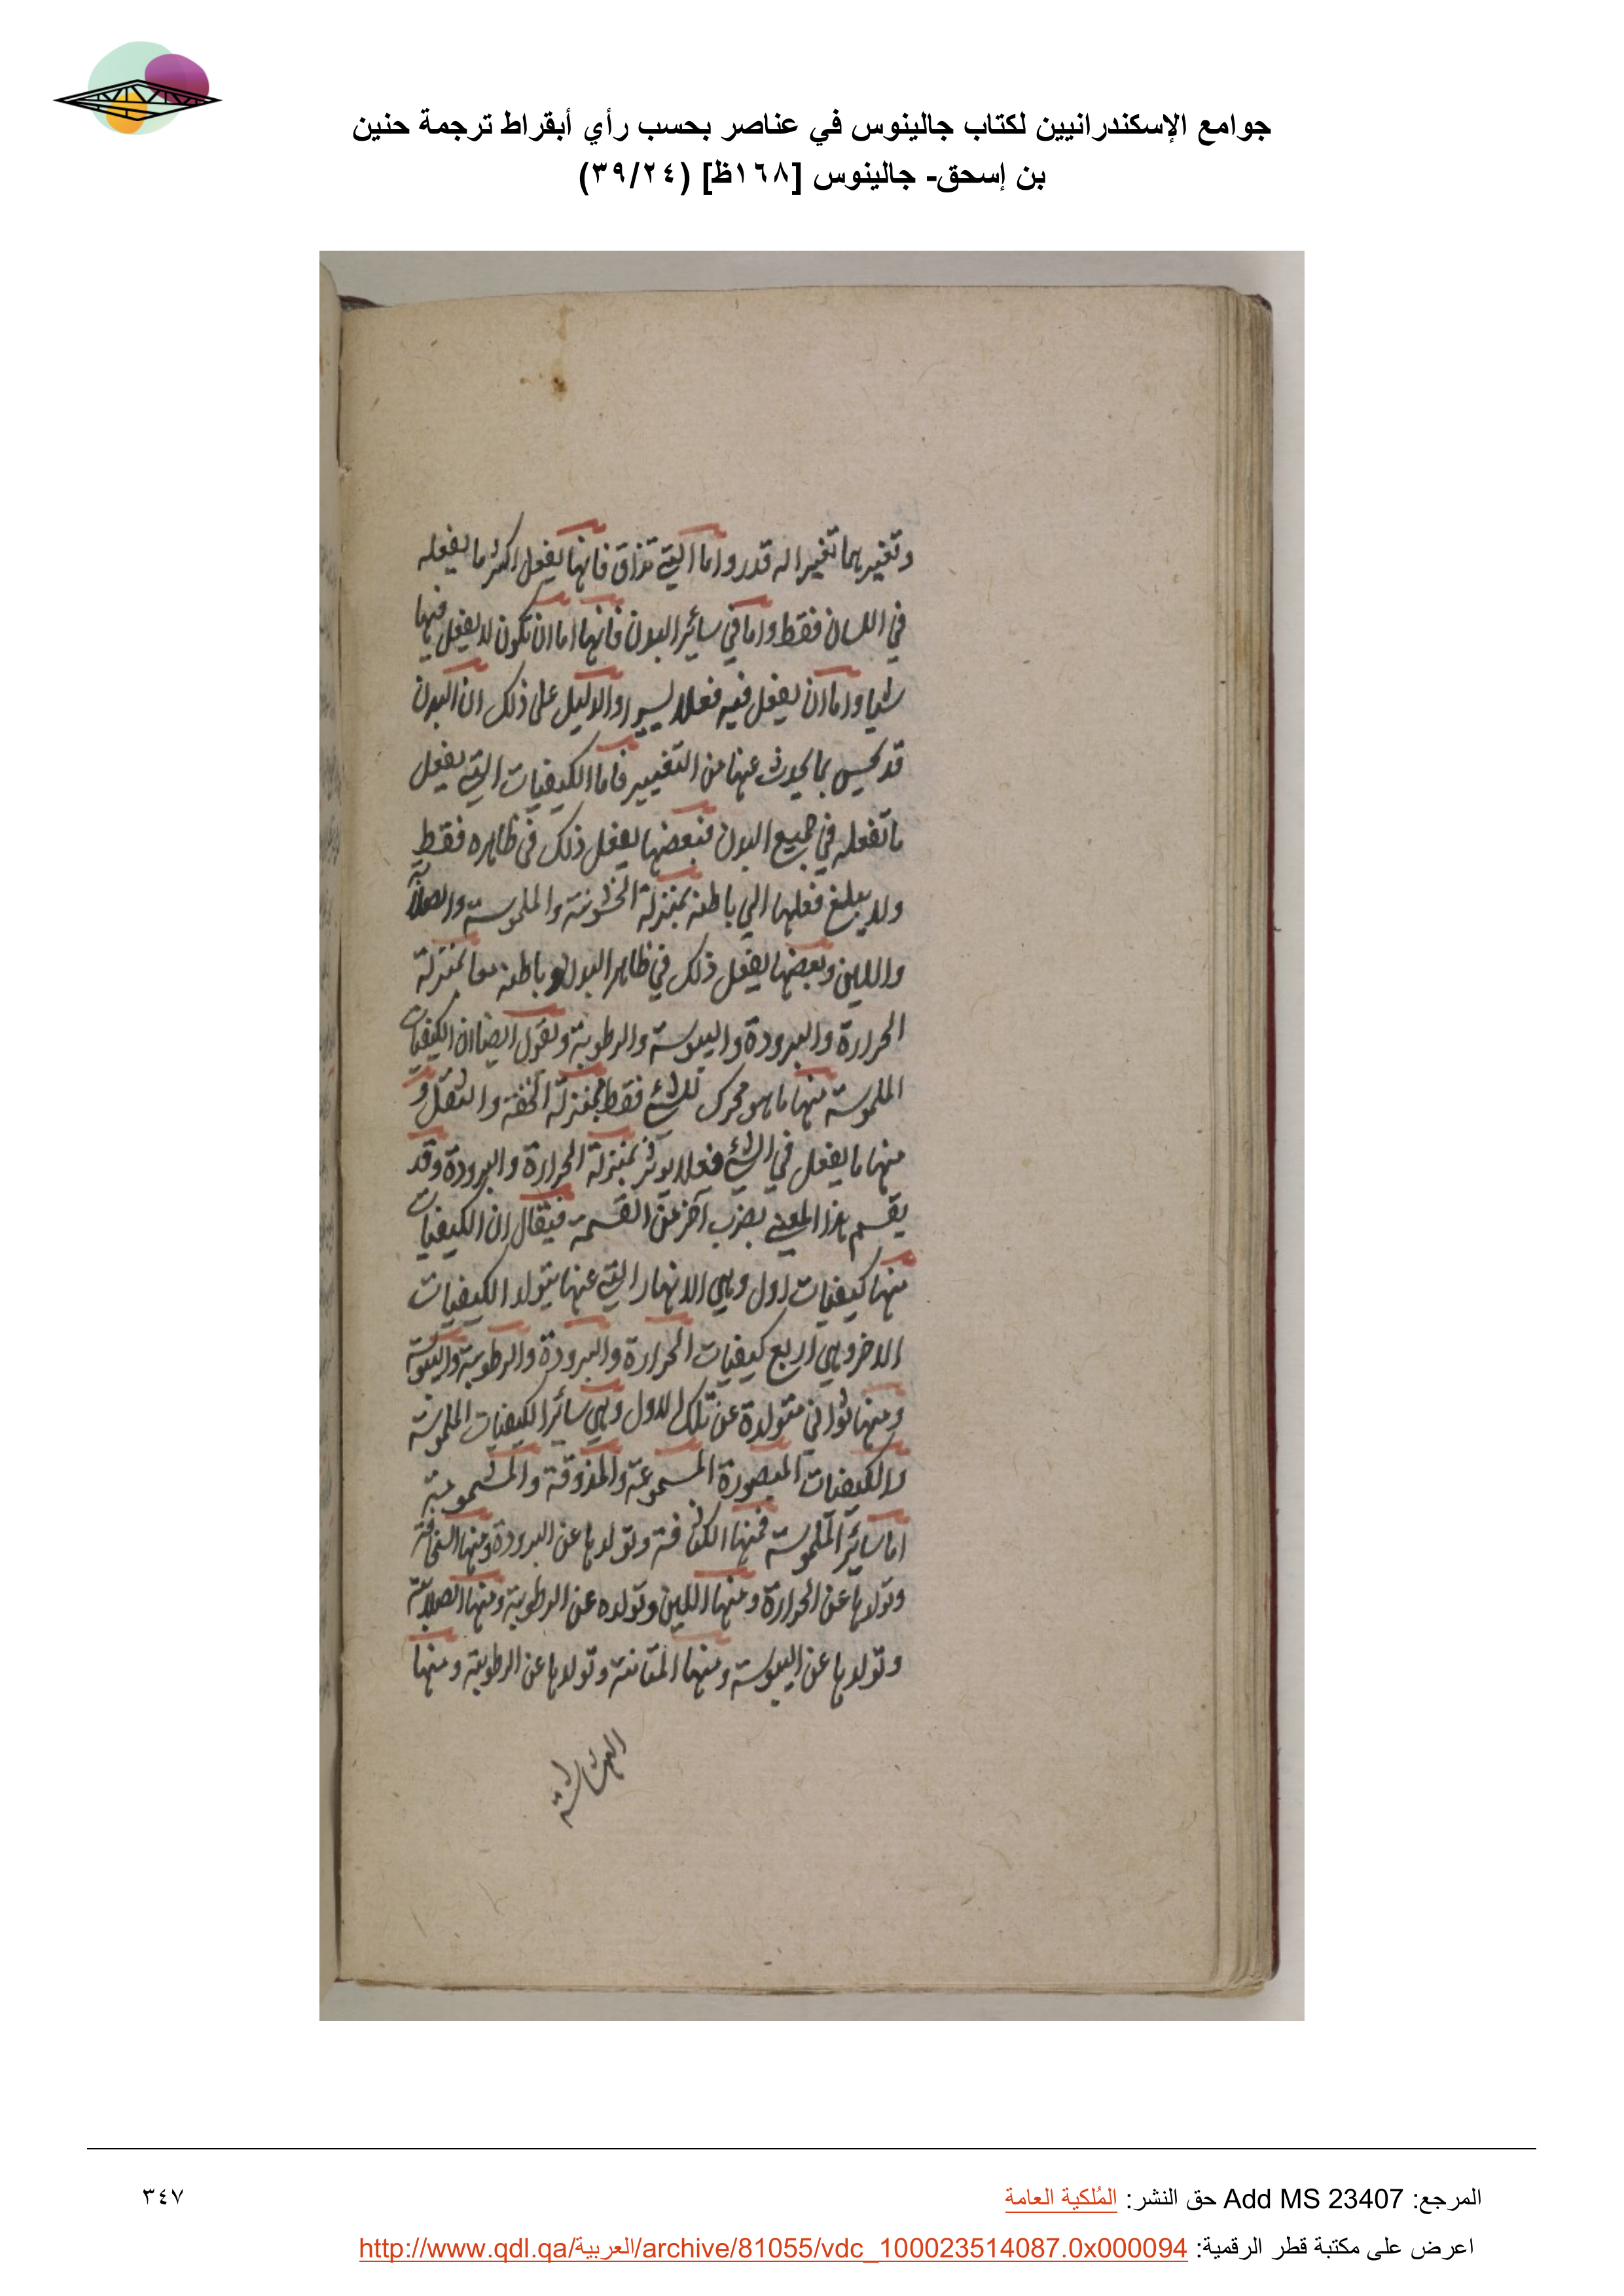 جوامع الإسكندرانيين لكتاب جالينوس في عناصر بحسب رأي أبقراط ترجمة حنين
بن إسحق- جالينوس [١٦٨ظ] (٣٩/٢٤)
وتغير بها تغييرا له قدر واما التي تذاق فانها يفعل اكثر ما يفعله
في اللسان فقط واما في سائر البدن فانها اما ان تكون لا يفعل فيها
شيا واما ان يفعل فيه فعلا يسيرا والدليل على ذلك ان البدن
قد يحس بما يحدث عنها من التغيير فاما الكيفيات التي يفعل
ما تفعله في جميع البدن فبعضها يفعل ذلك في ظاهره فقط
ولا يبلغ فعلها الي باطنه بمنزلة الخشونة والملموسة والصلابة
واللين وبعضها يفعل ذلك في ظاهر البدن وباطنه معا بمنزلة
الحرارة والبرودة واليبوسة والرطوبة ونقول ايضا ان الكيفيات
الملموسة منها ما هو محرك للشئ فقط بمنزلة الخفة والثقل و
منها ما يفعل في الشئ فعلا يوثر بمنزلة الحرارة والبرودة وقد
يقسم هذا المعنى بضرب آخر من القسمة فيقال ان الكيفيات
منها كيفيات اول وهي الانهار التي عنها يتولد الكيفيات
الاخر وهي اربع كيفيات الحرارة والبرودة والرطوبة واليبوسة
ومنها ثواني متولدة عن تلك الاول وهي سائر الكيفيات الملموسة
لا الكيفيات المبصورة المسموعة والمذوقة والمشمومة
اما سائر الملموسة فمنها الكثافة وتولدها عن البرودة ومنها السخافة
وتولدها عن الحرارة ومنها اللين وتولده عن الرطوبة ومنها الصلابة
وتولدها عن اليبوسة ومنها المتانة وتولدها عن الرطوبة ومنها
الهشاشة
المرجع: Add MS 23407 حق النشر: المُلكية العامة
٣٤٧
اعرض على مكتبة قطر الرقمية: http://www.qdl.qa/العربية/archive/81055/vdc_100023514087.0x000094